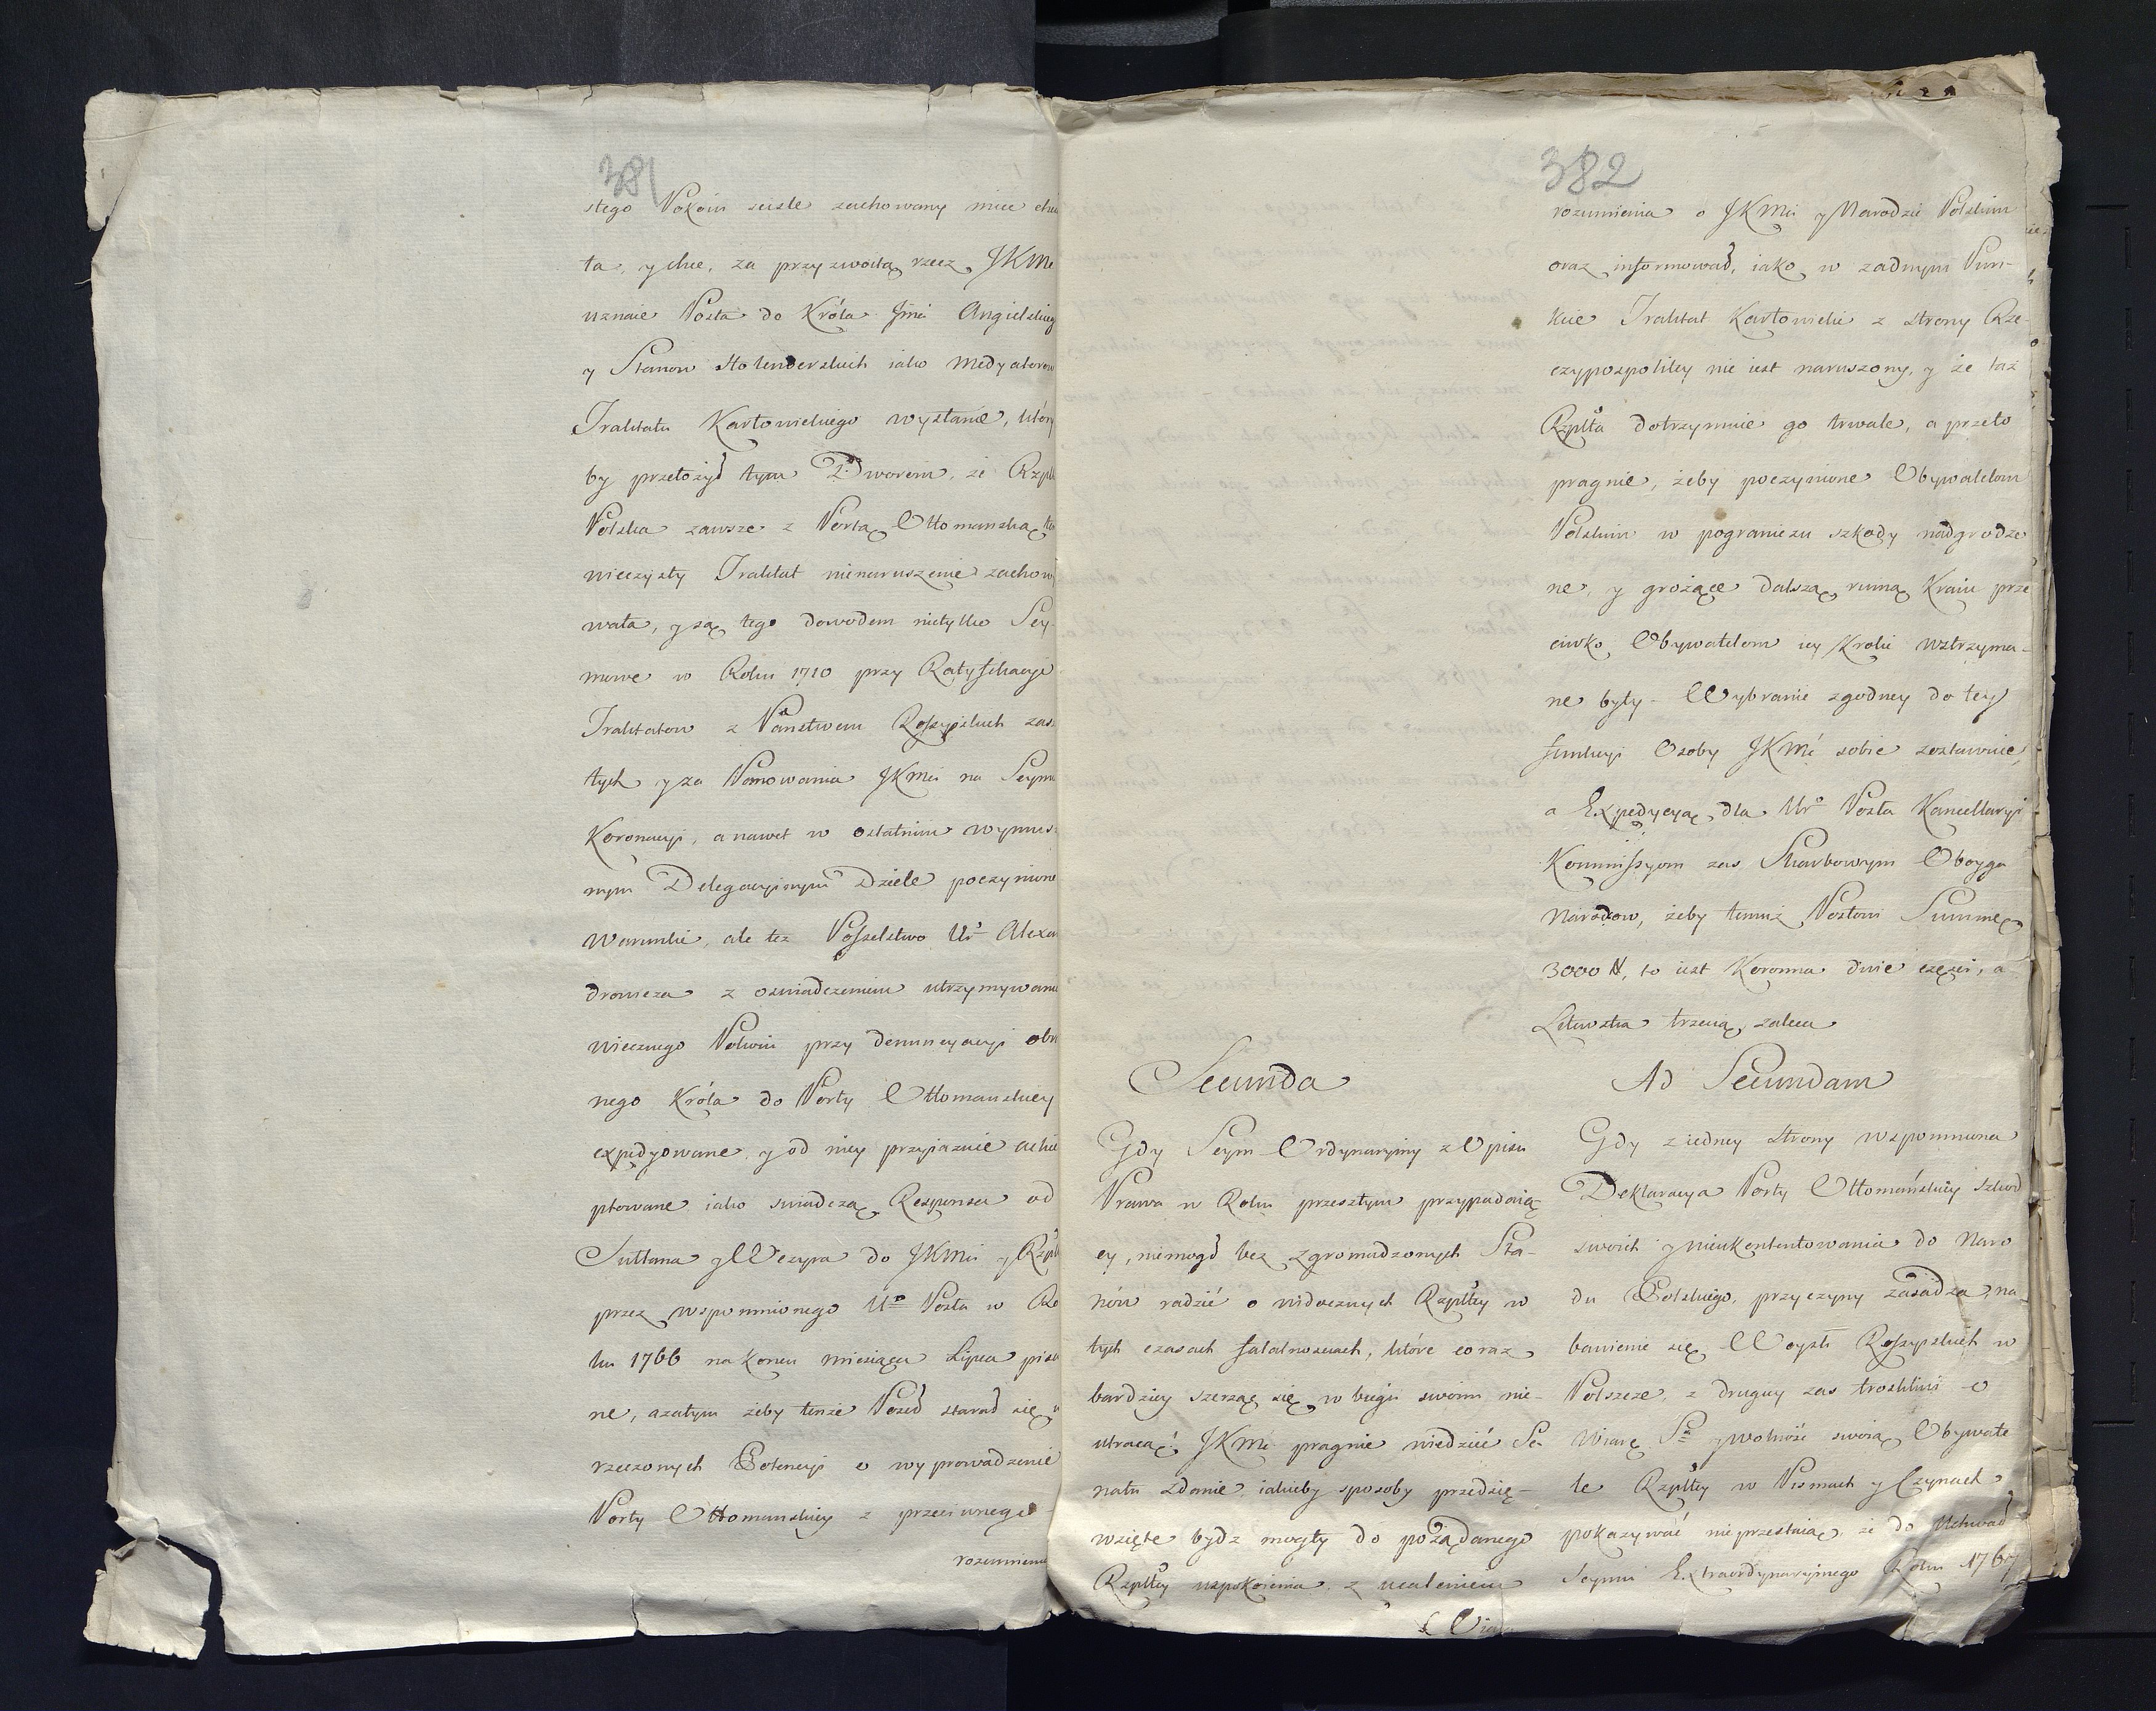 381
stego Pokoiu scisle zachowany miec chia
ta, y chce, za przyzwoitą rzecz JKMc
uznaie Posła do Króla Jmci Angielskieg
y Stanow Hollenderskich iako Medyatorow
Traktatu Karłowickiego wysłanie, któr
by przełożył tym Dworom, że Rzplt
Polska zawsze z Portą Ottomanską
wieczysty Traktat nienaruszenie zachow
wała, y są tego dowodem nietylko Sey-
mowe w Roku 1710 przy Ratyfikacyi
Traktatow z Państwem Rossyiskich zasz
tych y za Panowania JKMci na Seym
Koronacyi, a nawet w ostatnim wymus
nym Delegacyinym Dziele poczynione
Warunki, ale tez Posselstwo Ur Alexan
drowicza z oswiadczeniem utrzymywania
wiecznego Pokoiu przy denuncyacyi obra
nego Króla do Porty Ottomanskiey
expedyowane, y od niey przyiaznie acke
ptowane iako swiadczą Responsa od
Sułtana y Wezyra do JKMci y Rzplt
przez wspomnionego Ur Posła w Ro
ku 1766 na koncu miesiąca Lipca pisa
ne, azatym żeby tenze Poseł starał się u
rzeczonych Potencyi o wyprowadzenie
Porty Ottomanskiey z przeciwnego
rozumienia
382
rozumienia o JKMci y Narodzie Polskim
oraz informował, iako w zadnym Pun-
kcie Traktat Karłowicki z strony Rze-
czypospolitey nie iest naruszony, y że taż
Rzplta dotrzymuie go trwale, a przeto
pragnie, żeby poczynione Obywatelom
Polskim w pograniczu szkody nadgrodzo
ne, y grożące dalszą ruiną Kraiu prze
ciwko Obywatelom iey Kroki wstrzyma-
ne były. Wybranie zgodney do tey
funkcyi Osoby JKMć sobie zostawuie,
a Expedycyą dla Ur Posła Kancellaryi
Kommissyom zas Skarbowym Oboyga
Narodow, żeby temuż Posłowi Summę
3000 #, to iest Koronna dwie częsci, a
Litewska trzecią, zaleca
Secunda
Gdy Seym Ordynaryiny z Opisu
Prawa w Roku przeszłym przypadaiąc
cy, niemogł bez zgromadzonych Sta-
nów radzić o widocznych Rzpltey w
tych czasach fatalnosciach, które coraz
bardziey szerząc się w biegu swoim nie-
utracaią: JKMć pragnie wiedzieć Se-
natu zdanie, iakieby sposoby przedsię-
wzięte bydz mogły do pożądanego
Rzpltey uspokoienia z ucaleniem
Ad Secundam
Gdy z iedney strony wspomniona
Deklaracya Porty Ottomańskiey szkod
swoich y nieukontentowania do Naro
du Polskiego, przyczyny zasadza na
bawienie się Woysk Rossyiskich w
Polszcze, z drugiey zas troskliwi o
Wiarę S y wolność swoią Obywate
le Rzpltey w Pismach y Czynach
pokazywać nieprzestaią, że do Uchwał
Seymu Extraordynaryinego Roku 1767